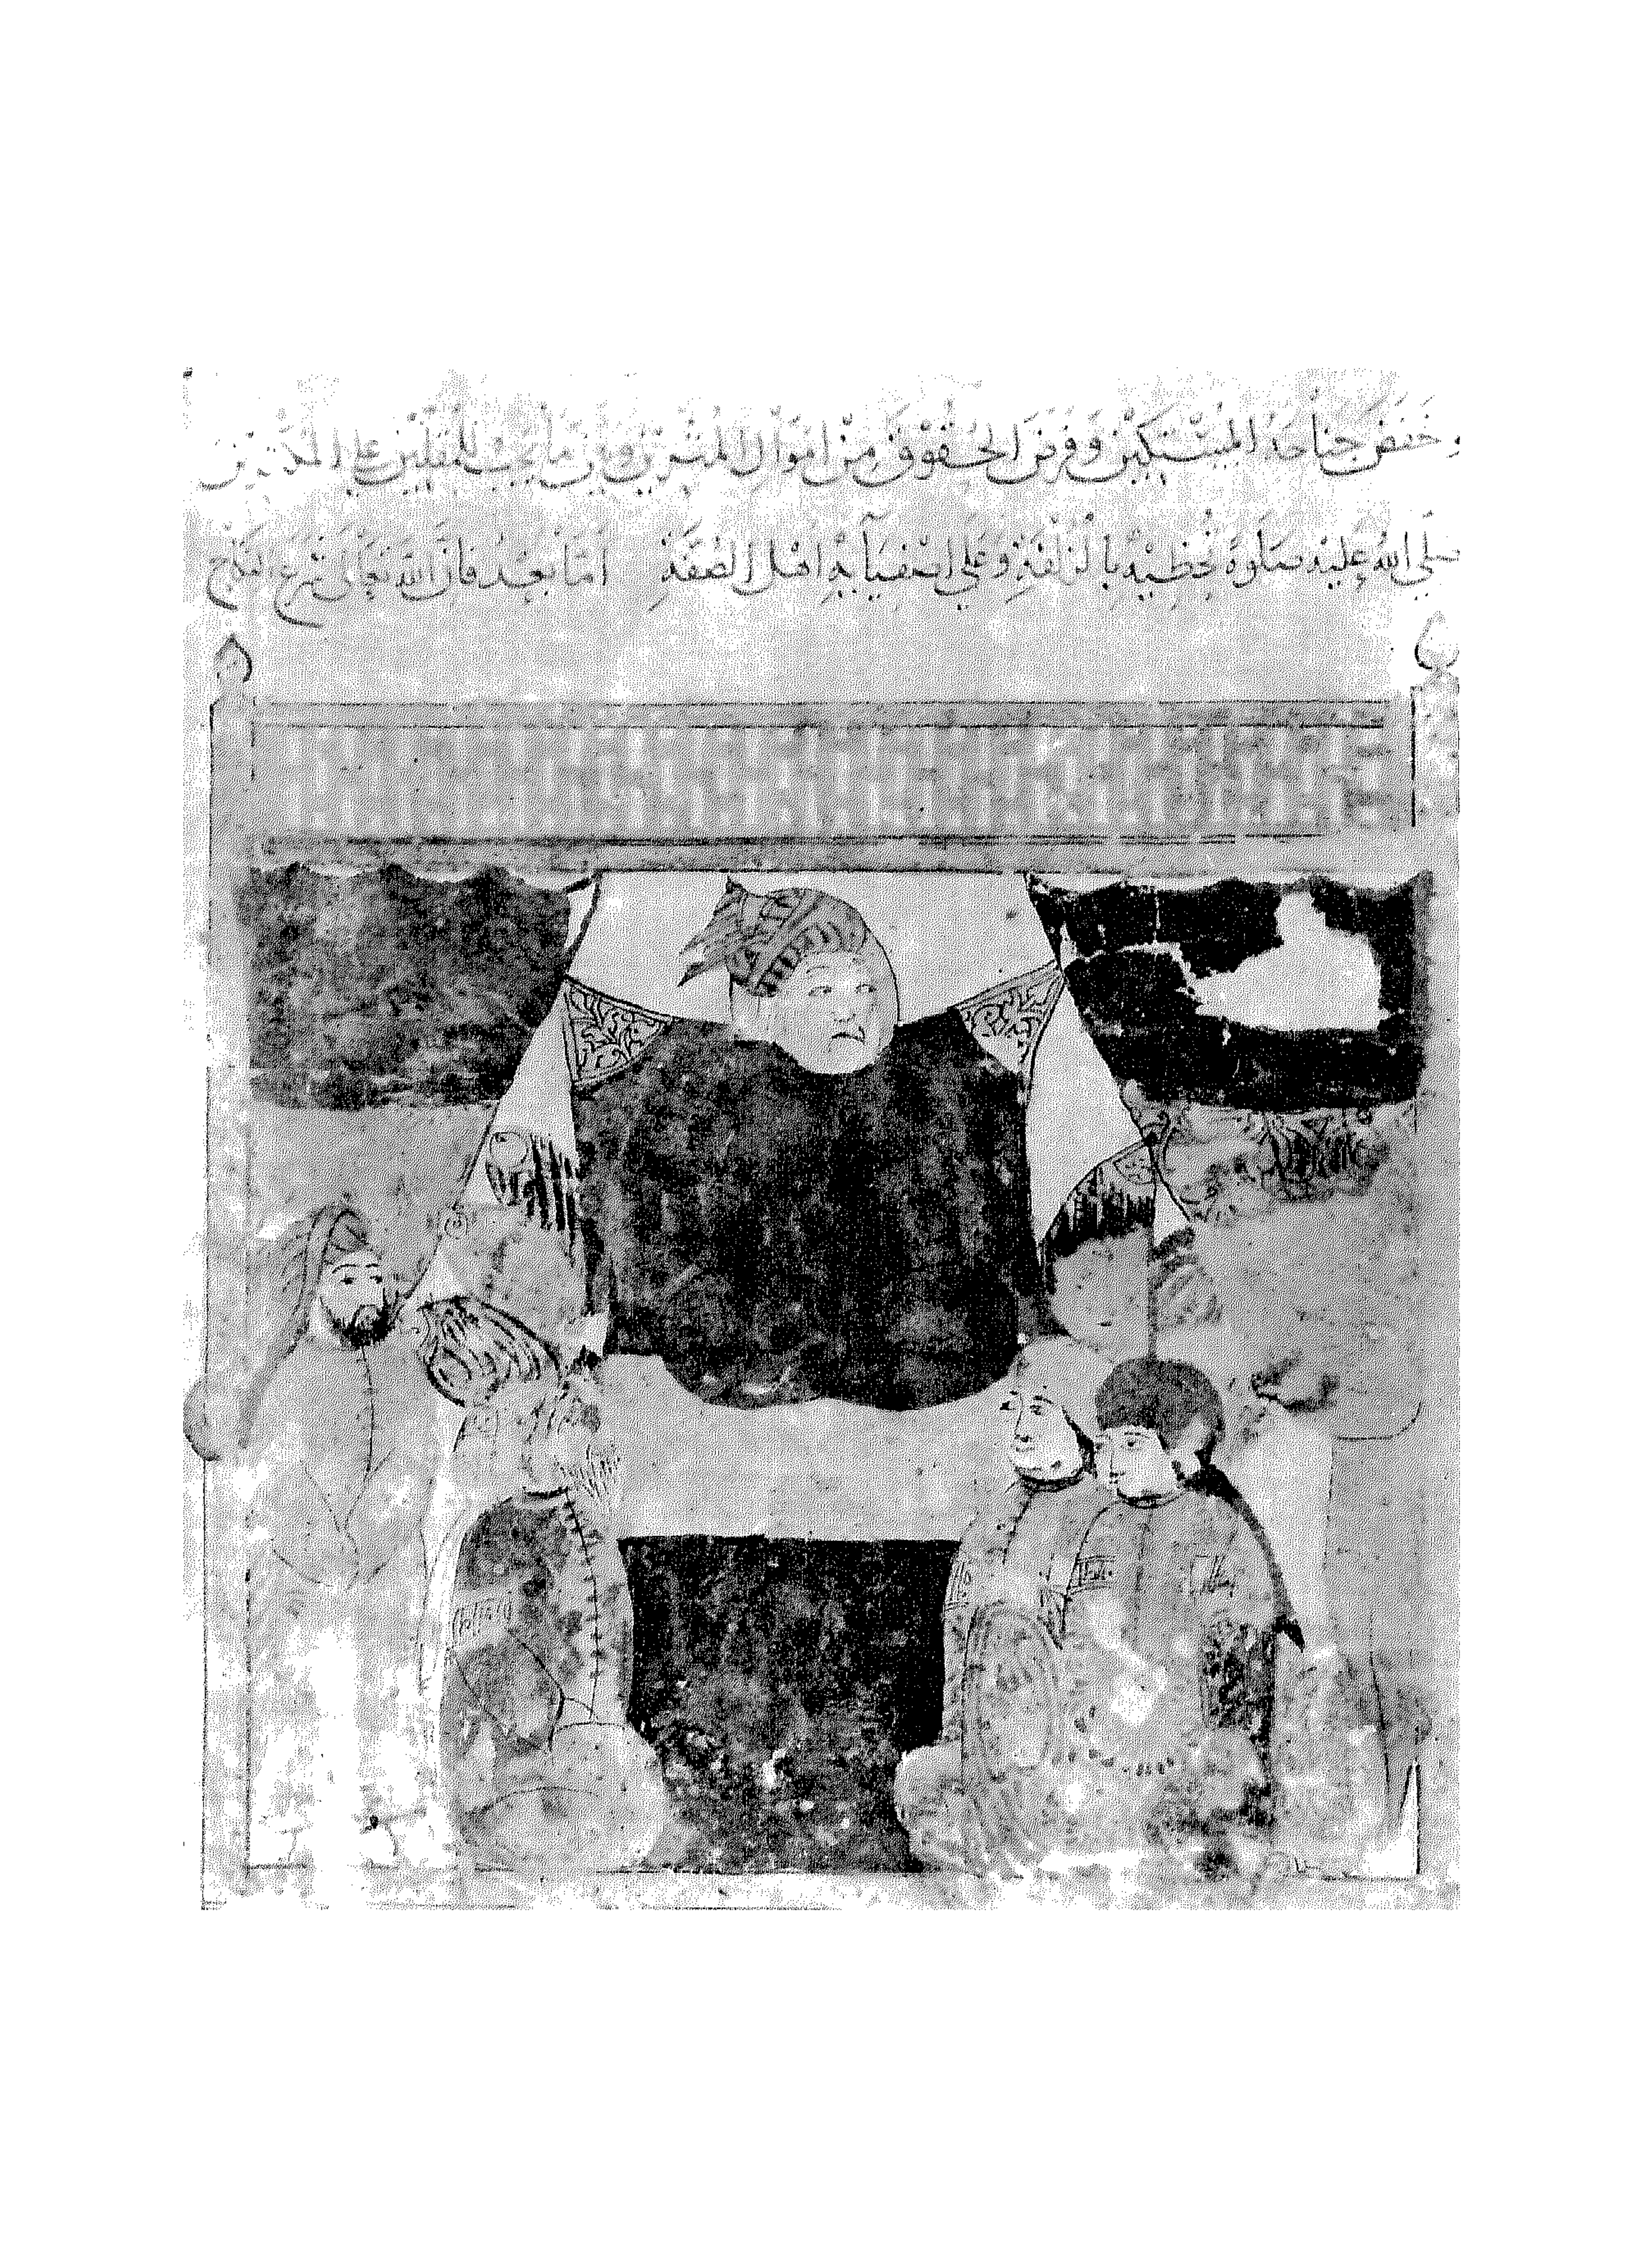 وخفض جناحه للمستكين وفرض الحقوق من اموال المثرين وبين ما يجب للمقلين على المكثرين
صلى الله عليه صلاة تحظيه بالزلفة وعلى اصفيائه اهل الصفة اما بعد فان الله تعالى شرع النكاح